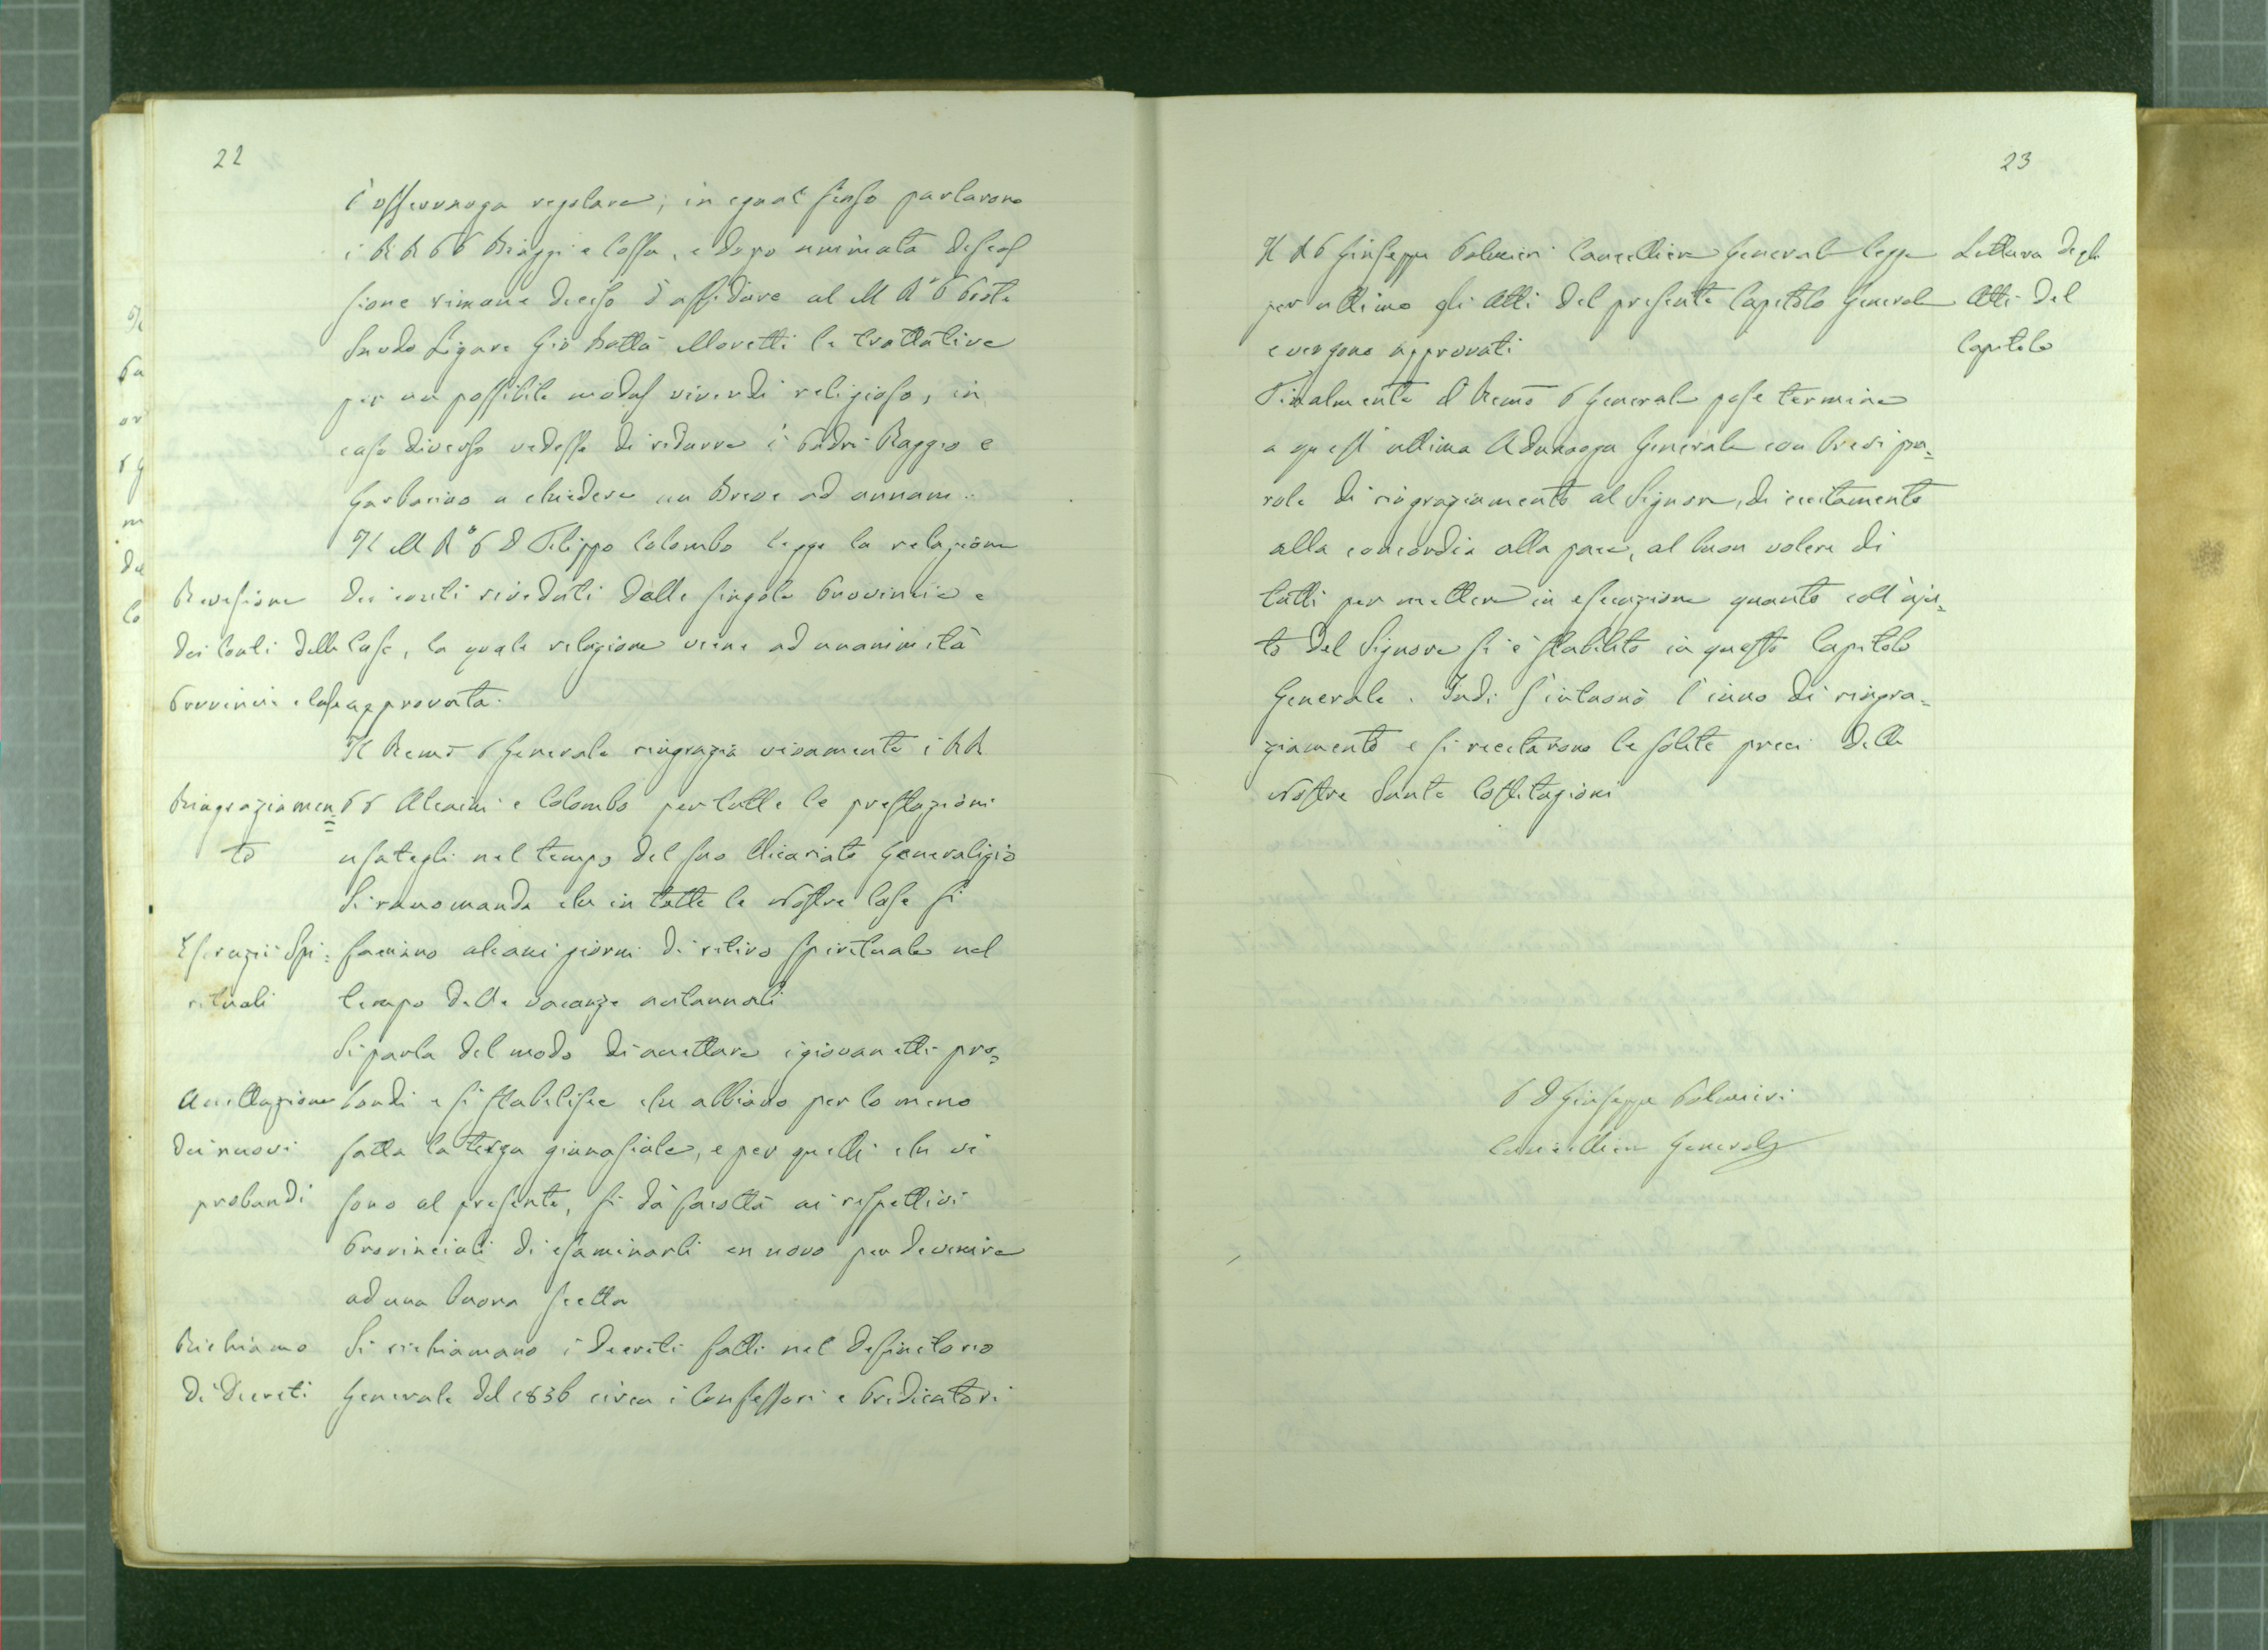 22
l'osservanza regolare; in egual senso parlarono
i RR PP Biaggi e Cossa, e dopo animata discus
sione rimane deciso d'affidare al M R.do P Prete
Sardo Ligure Gio Batta Moretti le trattative
per un possibile modus vivendi religioso, in
caso diverso vedesse di ridurre i Padri Raggio e
Garbarino a chiedere un Breve ad annum.
Il M R.do P D Filippo Colombo legge la relazione
Revisione dei conti riveduti delle singole Provincie e
dei Conti delle Case, la quale relazione viene ad unanimità
Provincie e Case approvata.
Il Remo P Generale ringrazia vivamente i RR
Ringraziamen= PP Alcaini e Colombo per tutte le prestazioni
to usategli nel tempo del suo Vicariato Generalizio
Si raccomanda che in tutte le Nostre Case si
Esercizii Spi= facciano alcuni giorni di ritiro spirituale nel
rituali tempo delle vacanze autunnali
Si parla del modo di accettare i giovanetti pro=
Accettazione bandi e si stabilisce che abbiano per lo meno
dei nuovi fatta la terza ginnasiale, e per quelli che vi
probandi sono al presente, si dà facoltà ai rispettivi
Provinciali di esaminarli en novo per devenire
ad una buona scelta
Richiamo Si richiamano i decreti fatti nel Definitorio
di Decreti Generale del 1836 circa i Confessori e Predicatori
23
Il R P Giuseppe Palmieri Cancelliere Generale legge Lettura degli
per ultimo gli Atti del presente Capitolo Generale Atti del
e vengono approvati Capitolo
Finalmente il Remo P Generale pose termine
a quest'ultima Adunanza Generale con brevi pa=
role di ringraziamento al Signore, di eccitamento
alla concordia alla pace, al buon volere di
tutti per mettere in esecuzione quanto coll'aju=
to del Signore si è stabilito in questo Capitolo
Generale. Indi s'intuonò l'inno di ringra=
ziamento e si recitarono le solite preci delle
Nostre Sante Costituzioni
P D Giuseppe Palmieri
Cancelliere Generale